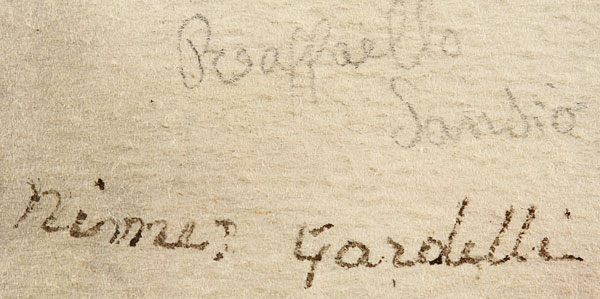 Raffaello
Sanzio
Gardelli